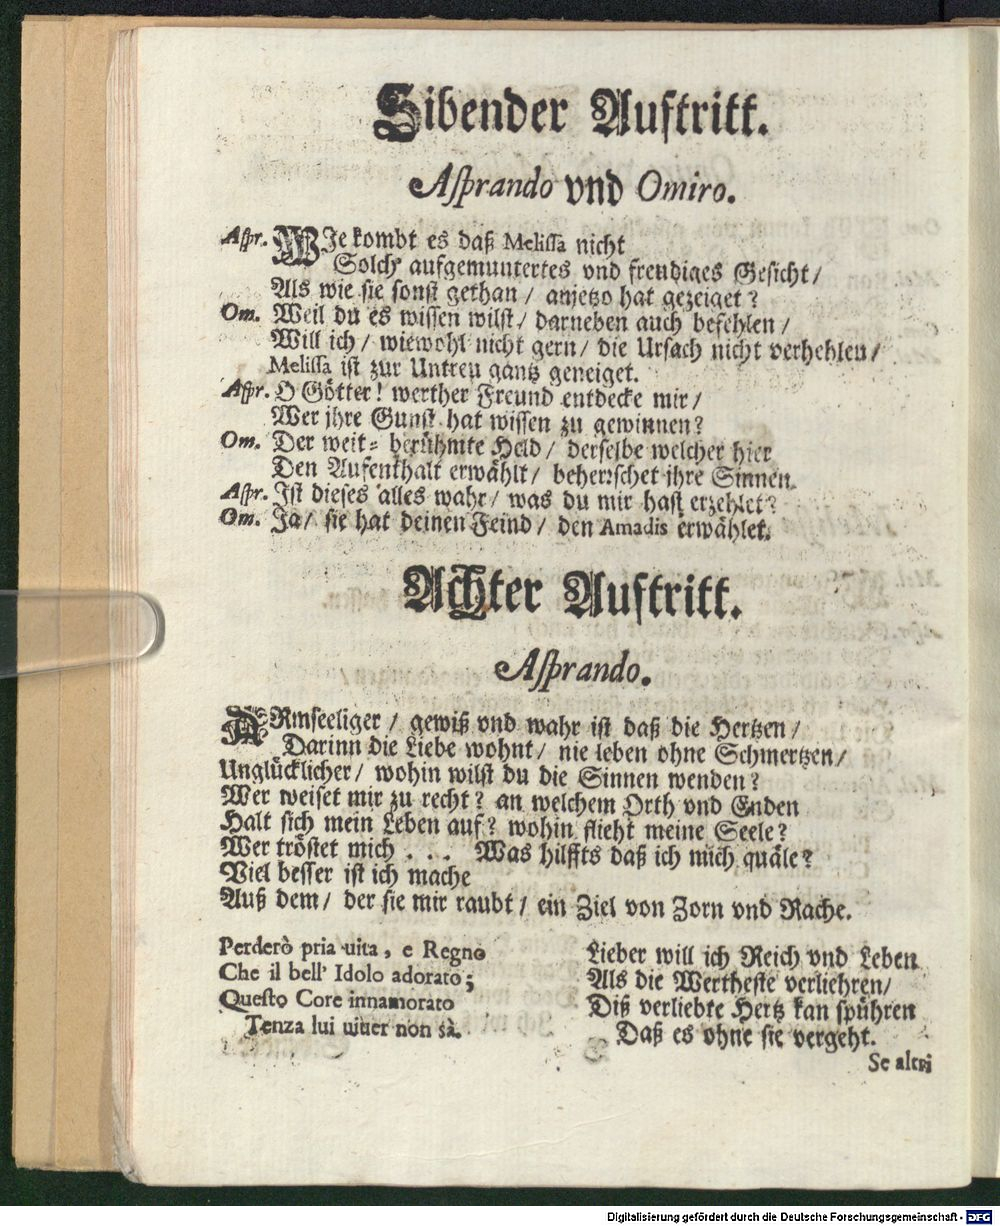 Sibender Auftritt.
Asprando vnd Omiro.
Aspr. WIe kombt es daß Melissa nicht
Solch' aufgemuntertes vnd freudiges Gesicht /
Als wie sie sonst gethan / anjetzo hat gezeiget?
Om. Weil du es wissen wilst / darneben auch befehlen /
Will ich / wiewohl nicht gern / die Ursach nicht verhehlen /
Melissa ist zur Untreu gantz geneiget.
Aspr. O Götter! werther Freund entdecke mir /
Wer jhre Gunst hat wissen zu gewinnen?
Om. Der weit= berühmte Held / derselbe welcher hier
Den Aufenthalt erwählt / beherrschet jhre Sinnen.
Aspr. Ist dieses alles wahr / was du mir hast erzehlet?
Om. Ja / sie hat deinen Feind / den Amadis erwählet.
Achter Auftritt.
Asprando.
ARmseeliger / gewiß vnd wahr ist daß die Hertzen /
Darinn die Liebe wohnt / nie leben ohne Schmertzen /
Unglücklicher / wohin wilst du die Sinnen wenden?
Wer weiset mir zu recht? an welchem Orth vnd Enden
Halt sich mein Leben auf? wohin flieht meine Seele?
Wer tröstet mich . . . Was hilffts daß ich mich quäle?
Viel besser ist ich mache
Auß dem / der sie mir raubt / ein Ziel von Zorn vnd Rache.
Perderò pria uita, e Regno
Che il bell' Idolo adorato;
Questo Core innamorato
Tenza lui uiuer non sà.
Lieber will ich Reich vnd Leben
Als die Wertheste verliehren /
Diß verliebte Hertz kan spühren
Daß es ohne sie vergeht.
Se altri
Digitalisierung gefördert durch die Deutsche Forschungsgemeinschaft - DFG